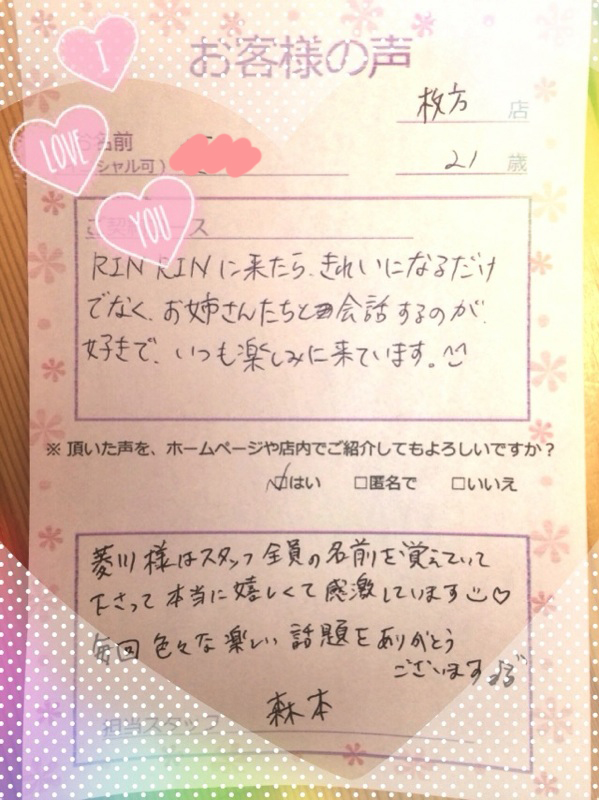 I
LOVE
YOU
お客様の声
枚方 店
お名前
シャル可)
21 歳
ご契約コース
RINRINに来たら、きれいになるだけ
でなく、お姉さんたちと会話するのが、
好きで、いつも楽しみに来ています。^^
※ 頂いた声を、ホームページや店内でご紹介してもよろしいですか?
☑はい □匿名で □いいえ
菱川様はスタッフ全員の名前を覚えていて
下さって本当に嬉しくて感激しています♡
毎回色々な楽しい話題をありがとう
ございます
森本
担当スタッフ